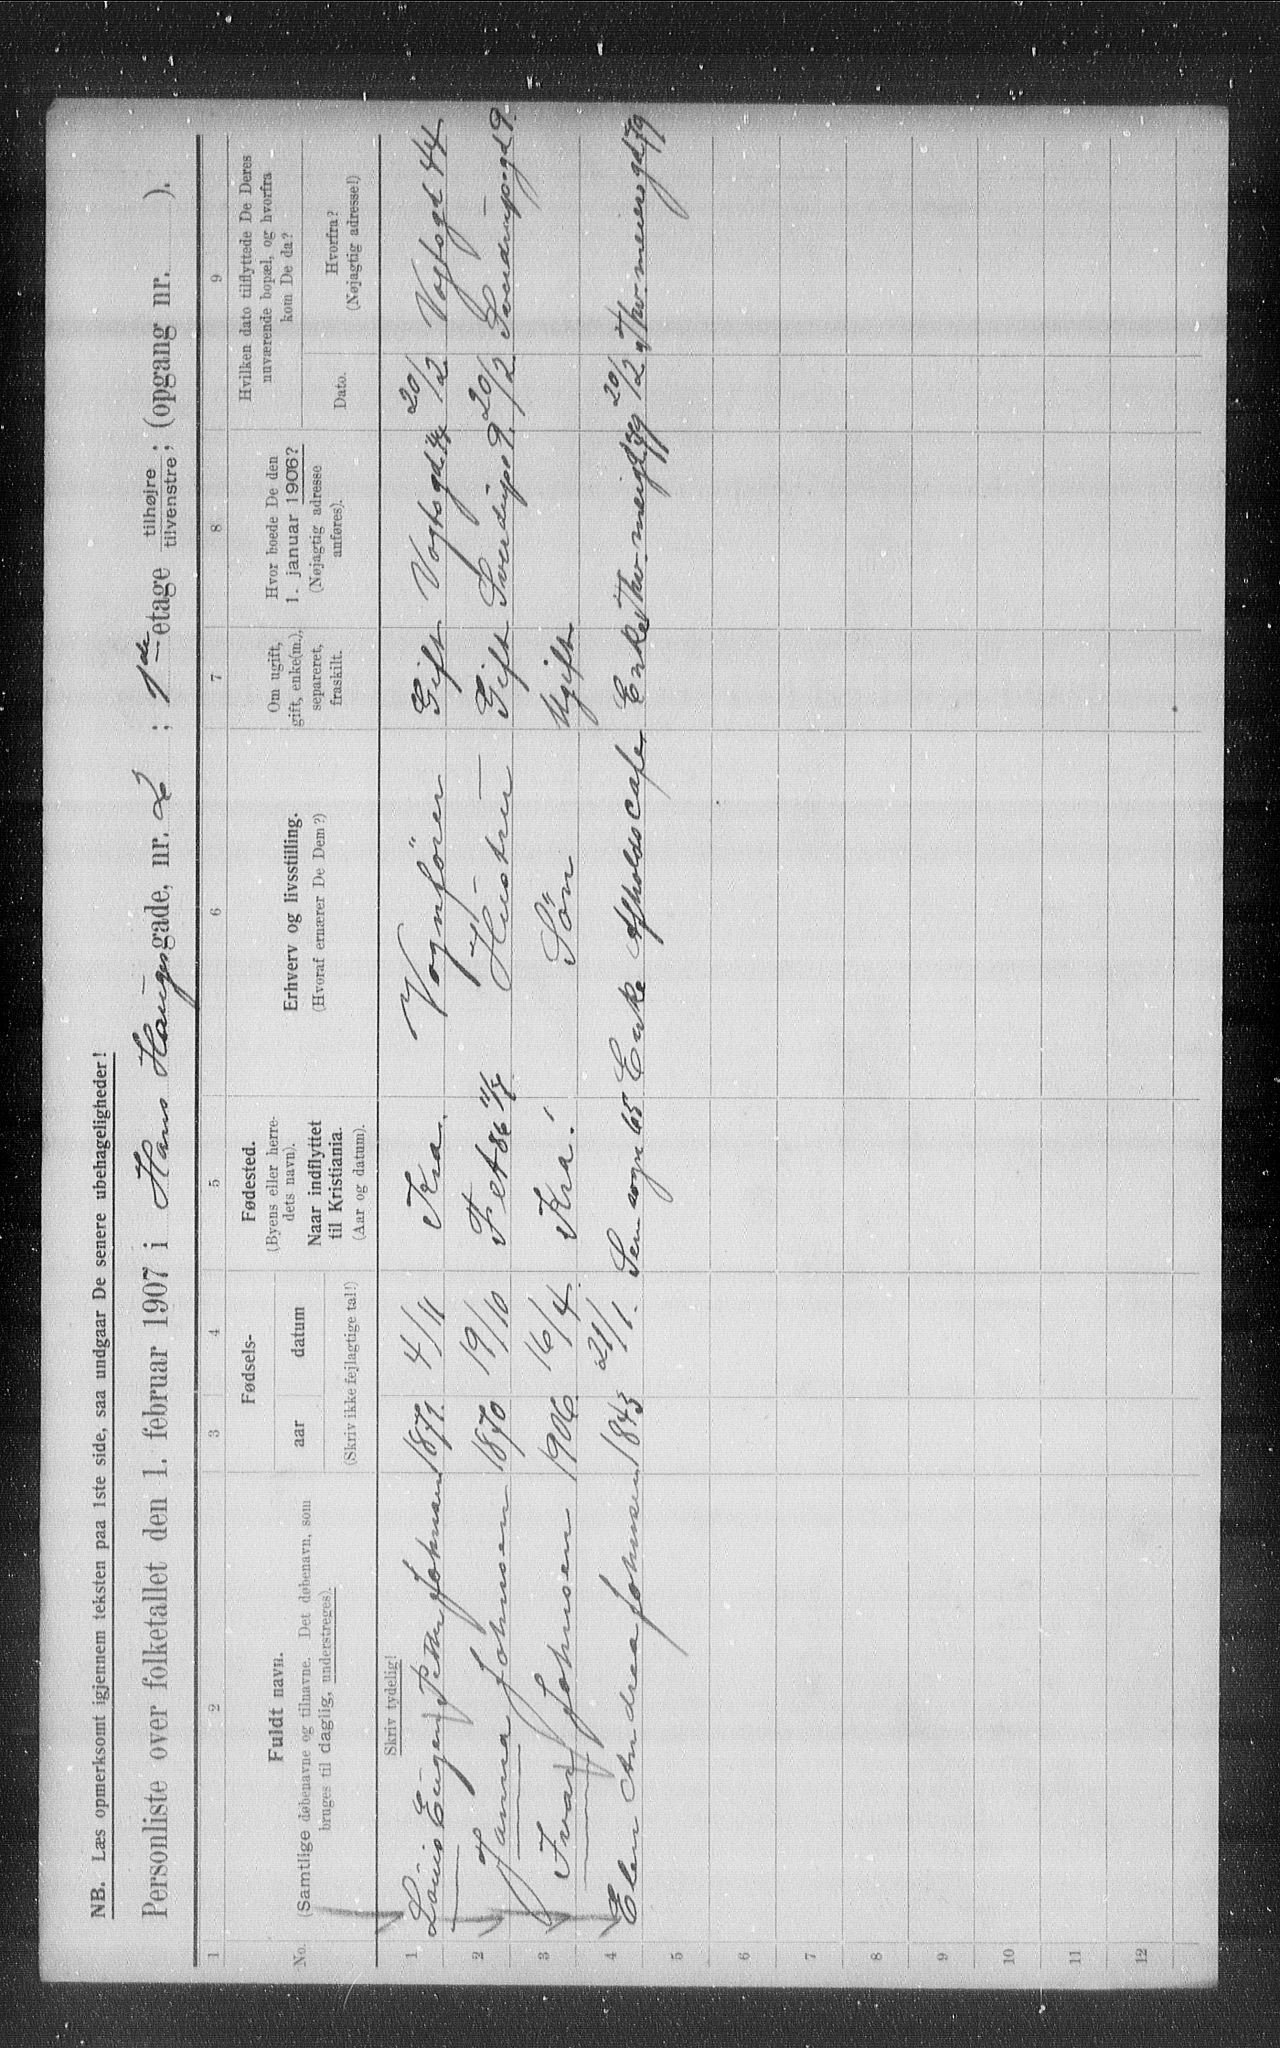 NB. Læs opmerksomt igjennem teksten paa 1ste side, saa undgaar De senere ubehageligheder!
Personliste over folketallet den 1. februar 1907 i Hans Haugesgade, nr. 2; 1de etage tilhøjre / tilvenstre; (opgang nr. ).
1 2 3 4 5 6 7 8 9
No. Fuldt navn. (Samtlige døbenavne og tilnavne. Det døbenavn, som bruges til daglig, understreges). Fødsels- aar datum (Skriv ikke fejlagtige tal!) Fødested. (Byens eller herredets navn). Naar indflyttet til Kristiania. (Aar og datum). Erhverv og livsstilling. (Hvoraf ernærer De Dem?) Om ugift, gift, enke(m.), separeret, fraskilt. Hvor boede De den 1. januar 1906? (Nøjagtig adresse anføres). Hvilken dato tilflyttede De Deres nuværende bopæl, og hvorfra kom De da? Dato. Hvorfra? (Nøjagtig adresse!)
Skriv tydelig!
1 Louis Eugen Petter Johnsen 1871. 4/11 Kra. Vognfører Gift Vogtsgd 44 20/12 Vogtsgd 44
2 Janna Johnsen 1870 19/10 Fet 86 Hustru Gift Sverdrupsg 9. 20/12. Sverdrupsgd 9.
3 Ivar Johnsen 1906. 16/4. Kra. Søn Ugift
4 Elen Andrea Johnsen 1843 21/1. 65 Enke Afholdscafe Enke Thv. meiersgd 79 20/12 Thv. meiersgd 79
5
6
7
8
9
10
11
12